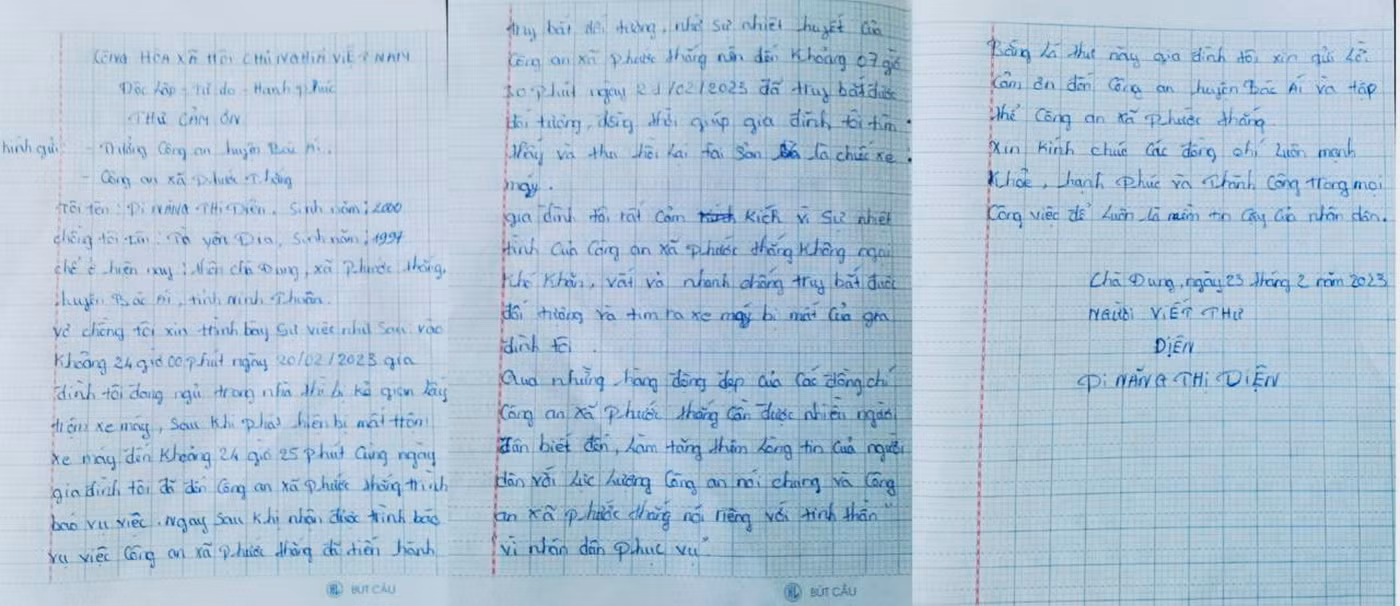 CỘNG HÒA XÃ HỘI CHỦ NGHĨA VIỆT NAM
Độc lập - Tự do - Hạnh phúc
THƯ CẢM ƠN
kính gửi: - Trưởng Công an huyện Bác Ái.
- Công an xã Phước Thắng
Tôi tên: Pi NĂNG THỊ Diện, Sinh năm: 2000
chồng tôi tên: Tà yên Dra, Sinh năm: 1997
chổ ở hiện nay: thôn chà Đung, xã phước thắng,
huyện Bác Ái, tỉnh Ninh Thuận.
vợ chồng tôi xin trình bày sự việc như sau: vào
khoảng 24 giờ 00 phút ngày 20/02/2023 gia
đình tôi đang ngủ trong nhà thì bị kẻ gian lấy
trộm xe máy, sau khi phát hiện bị mất trộm
xe máy đến khoảng 24 giờ 25 phút cùng ngày
gia đình tôi đã đến Công an xã phước thắng trình
báo vụ việc. Ngay sau khi nhận được trình báo
vụ việc Công an xã phước thắng đã tiến hành
truy bắt đối tượng, nhờ sự nhiệt huyết của
Công an xã phước thắng nên đến khoảng 07 giờ
30 phút ngày 21/02/2023 đã truy bắt được
đối tượng, đồng thời giúp gia đình tôi tìm
thấy và thu hồi lại tài sản là chiếc xe
máy.
gia đình tôi rất cảm kích vì sự nhiệt
tình của Công an xã phước thắng không ngại
khó khăn, vất vả nhanh chóng truy bắt được
đối tượng và tìm ra xe máy bị mất của gia
đình tôi.
Qua những hành động đẹp của các đồng chí
Công an xã phước thắng cần được nhiều người
dân biết đến, làm tăng thêm lòng tin của người
dân với lực lượng Công an nói chung và Công
an xã phước thắng nói riêng với tinh thần "
"vì nhân dân phục vụ".
Bằng lá thư này gia đình tôi xin gửi lời
cảm ơn đến Công an huyện Bác Ái và tập
thể Công an xã phước thắng.
Xin kính chúc các đồng chí luôn mạnh
khỏe, hạnh phúc và thành công trong mọi
công việc để luôn là niềm tin cậy của nhân dân.
Chà Đung, ngày 23 tháng 2 năm 2023
NGƯỜI VIẾT THƯ
DIỆN
Pi NĂNG THỊ DIỆN
BÚT CÂU
BÚT CÂU